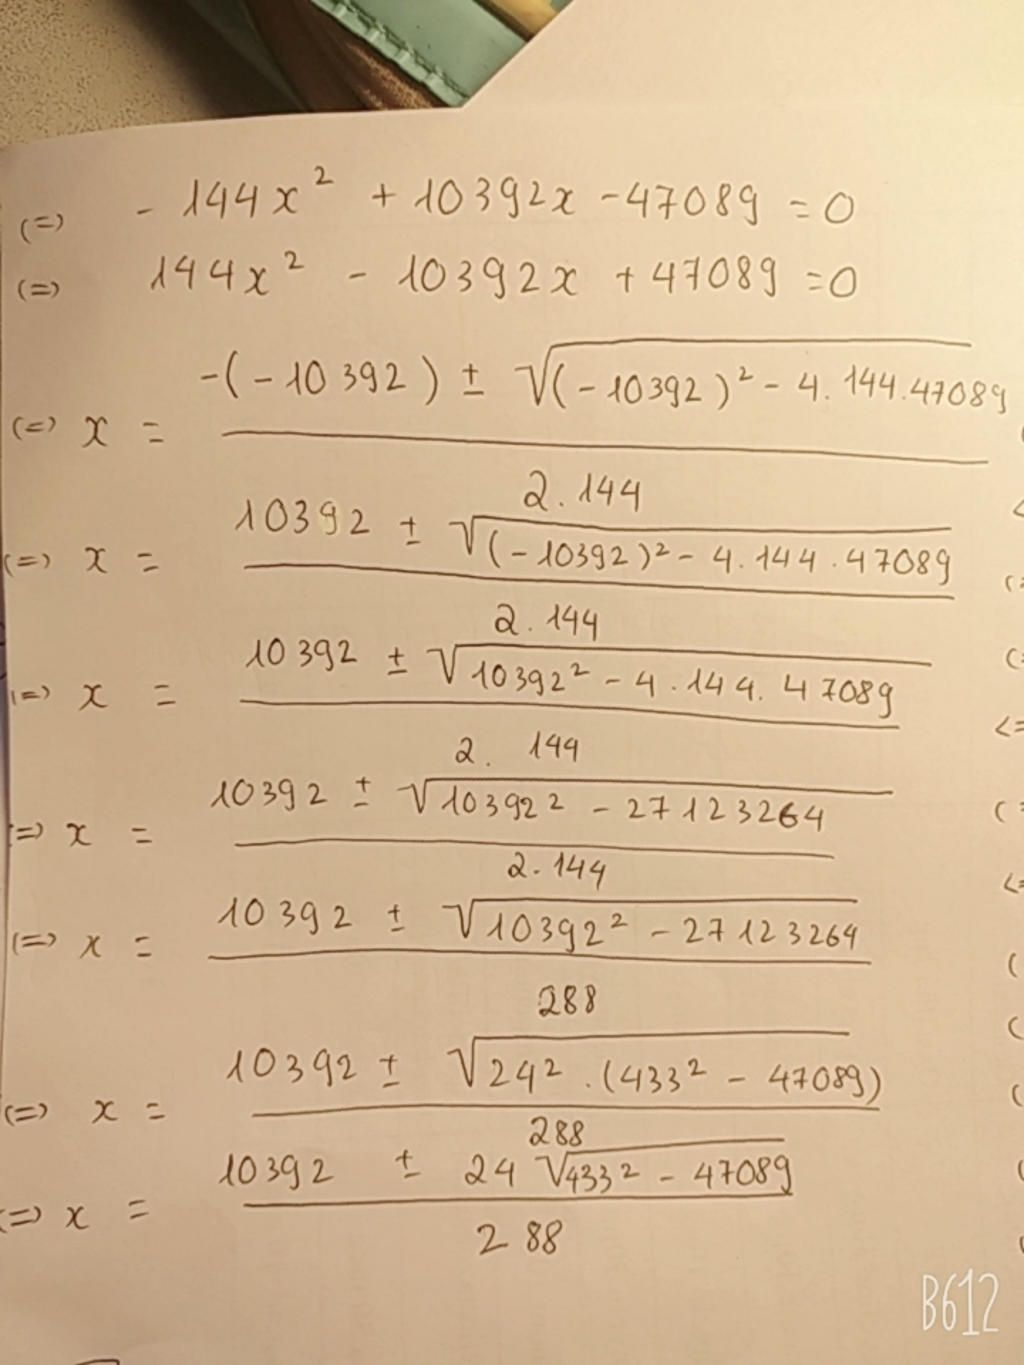 (=) - 144x² + 10392x - 47089 = 0
(=) 144x² - 10392x + 47089 = 0
(=) x = -(-10392) ± √(-10392)² - 4.144.47089
2.144
(=) x = 10392 ± √(-10392)² - 4.144.47089
2.144
(=) x = 10392 ± √10392² - 4.144.47089
2.144
(=) x = 10392 ± √10392² - 27123264
2.144
(=) x = 10392 ± √10392² - 27123264
288
(=) x = 10392 ± √24².(433² - 47089)
288
(=) x = 10392 ± 24√433² - 47089
288
B612